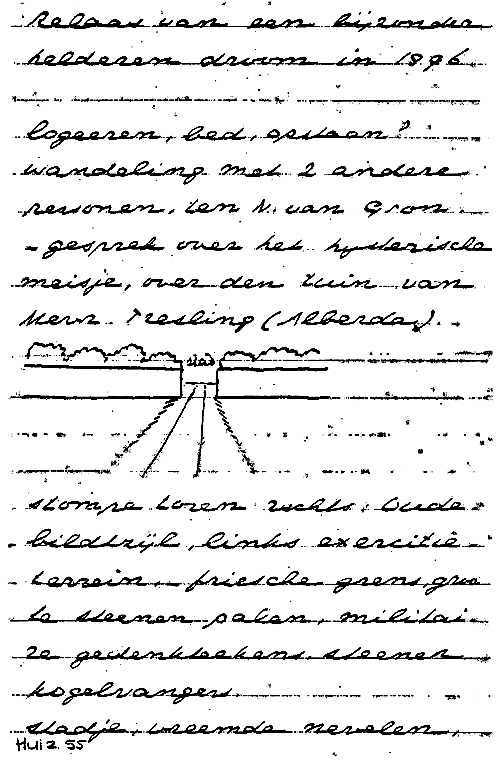 Relaas van een bijzonder
helderen droom in 1896.
logeeren, bed, gestaan?
wandeling met 2 andere
personen, ten N. van Gron.
- gesprek over het hysterische
meisje, over den tuin van
Mevr. Tresling (Alberda).
stad
stompe toren rechts. Oude-
bildtzijl, links exercitie-
terrein, friesche grens, groo
te steenen palen, militai-
re gedenkteekens, steenen
kogelvangers.
stadje, vreemde nevelen,
Huiz 55